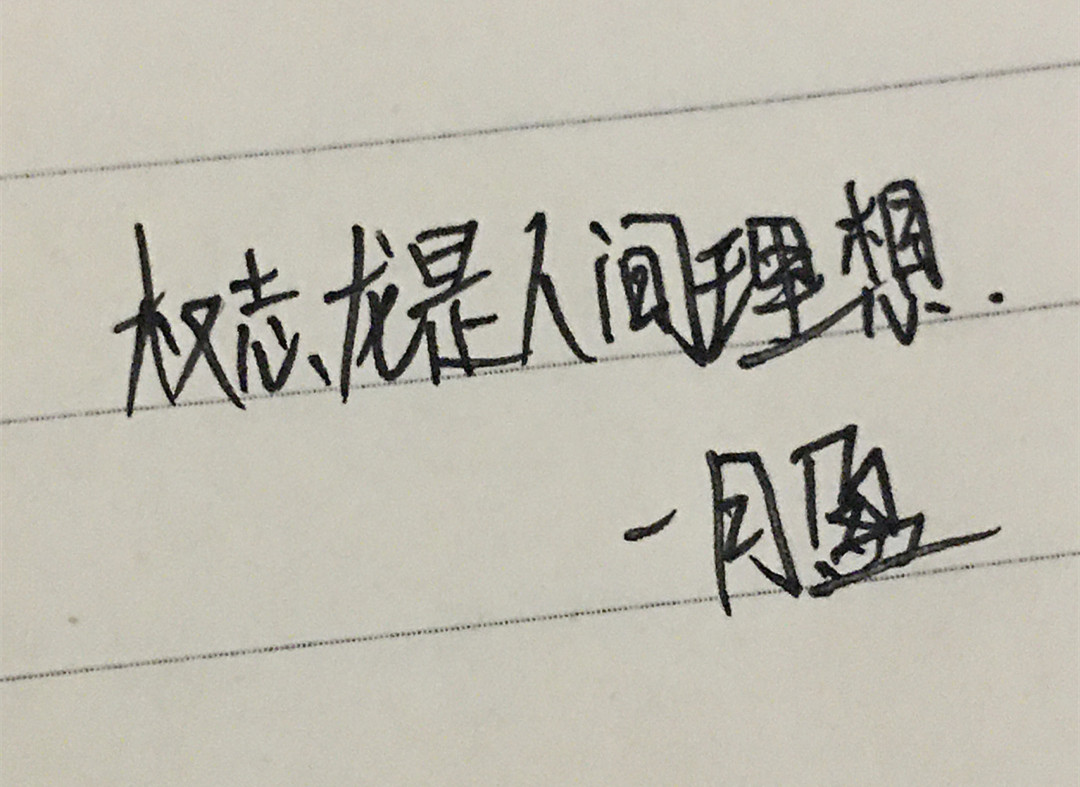 权志龙是人间理想.
-月盈